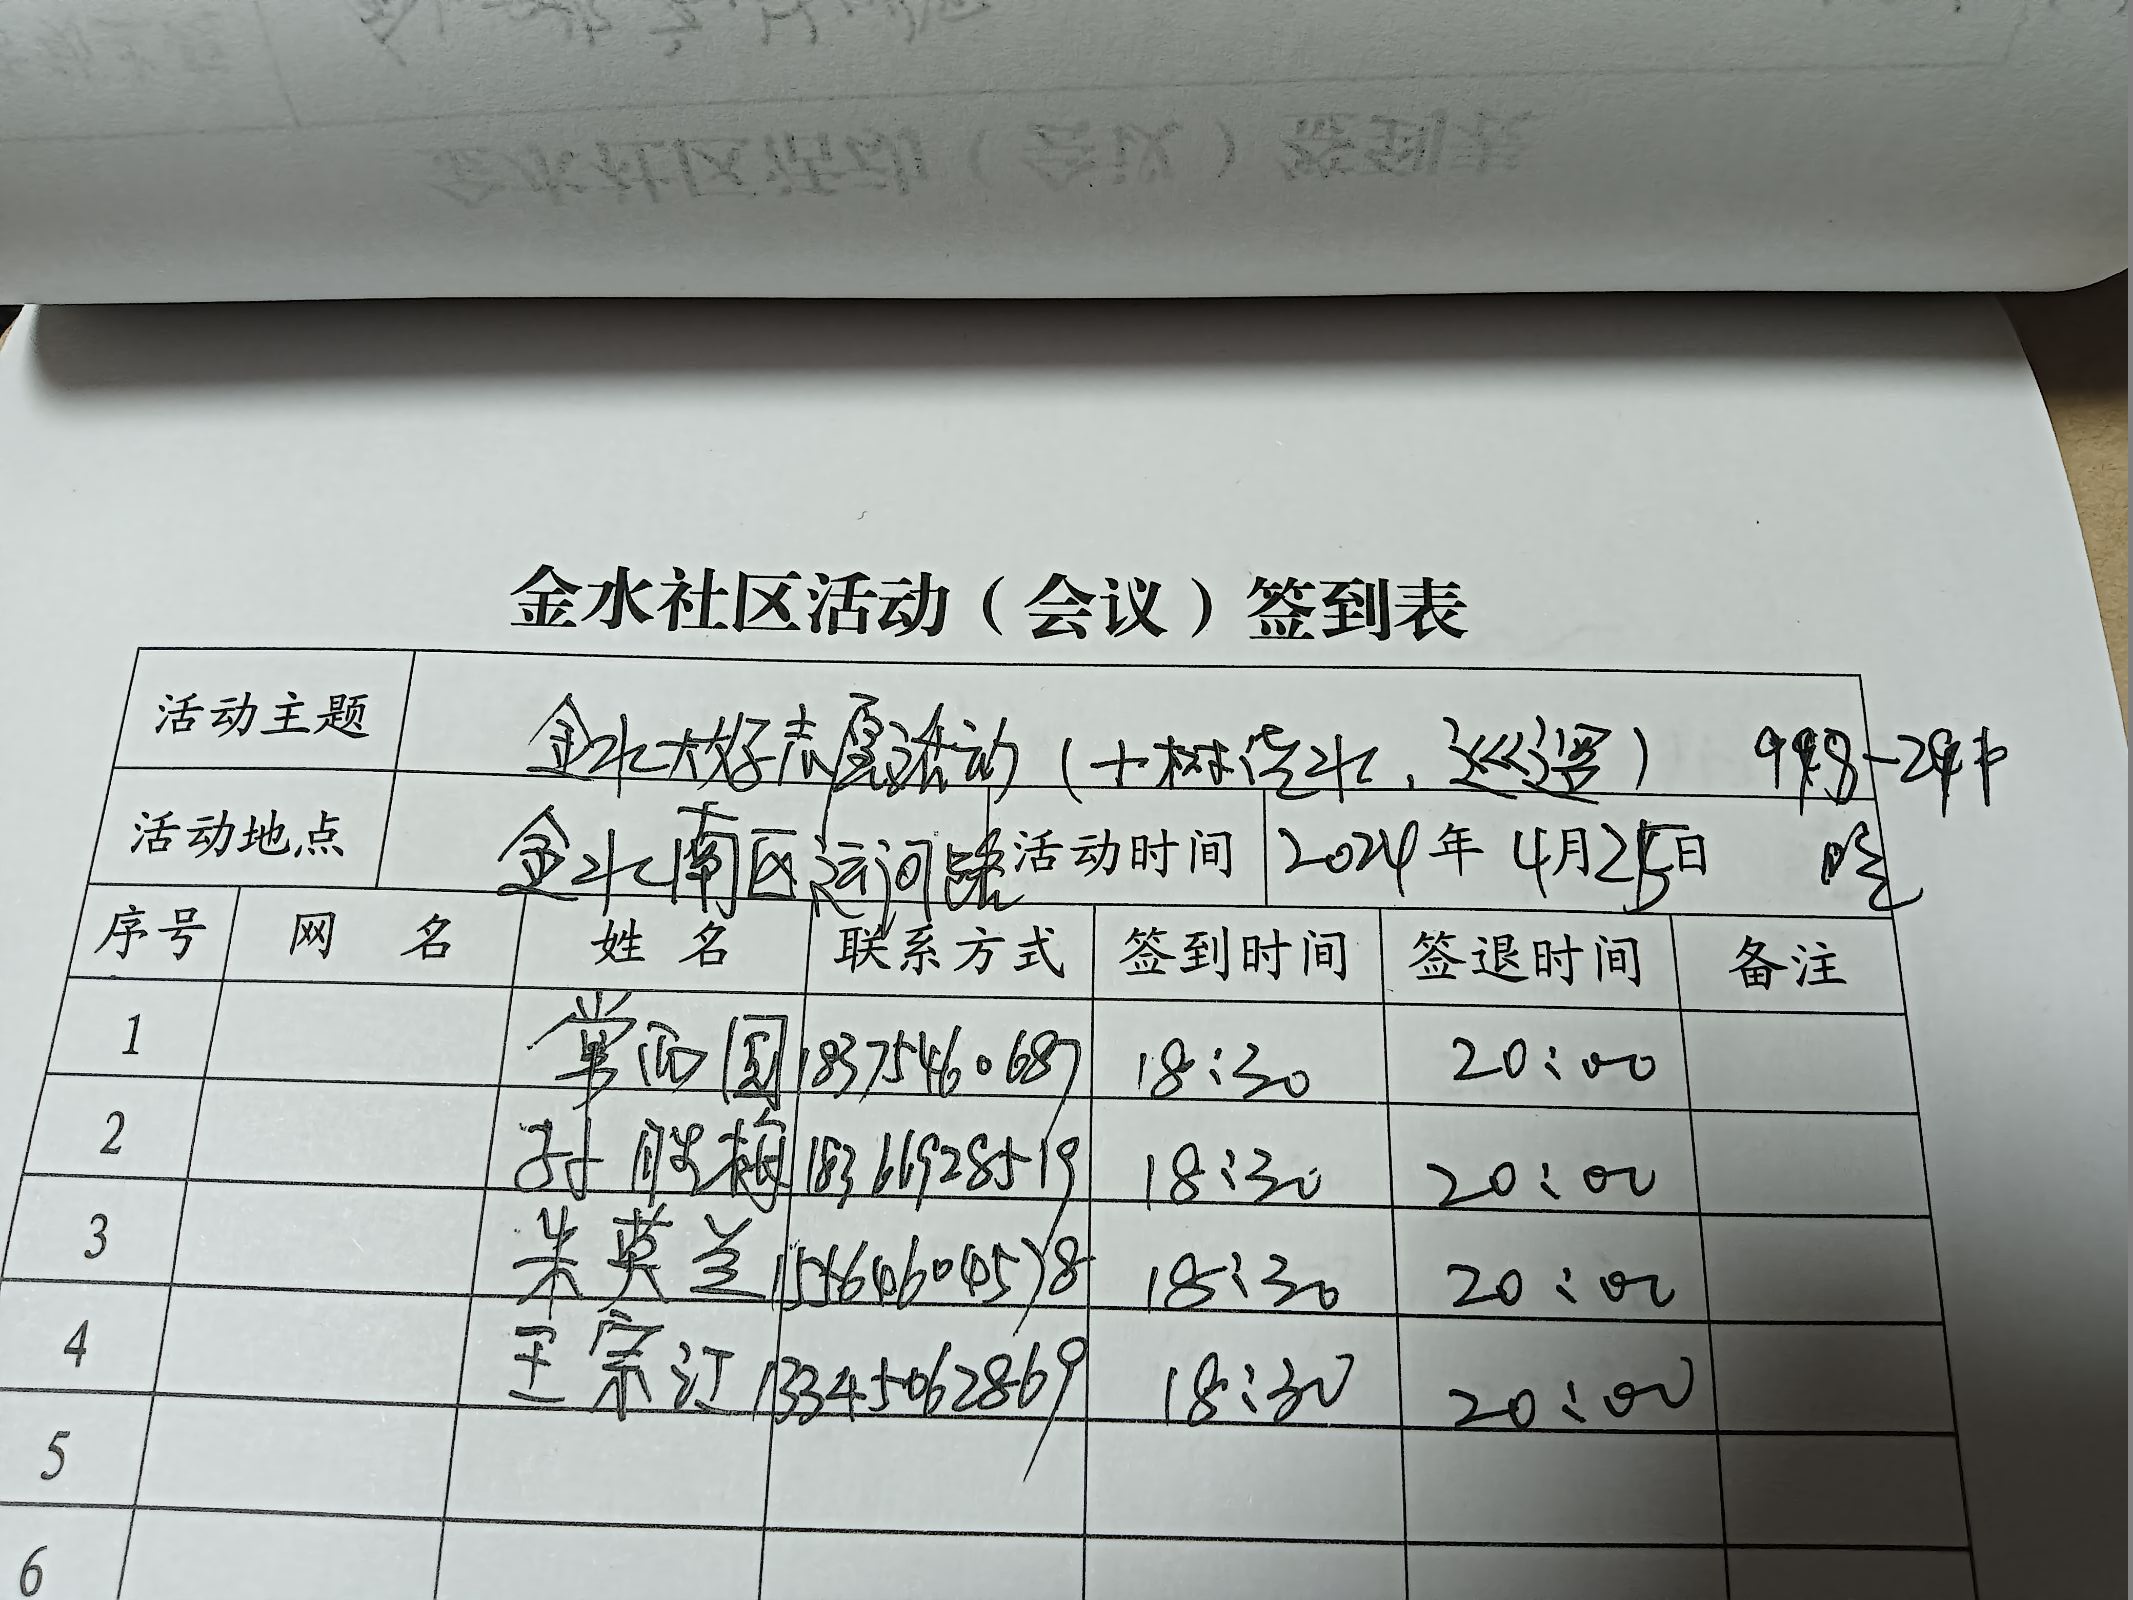 金水社区活动（会议）签到表
活动主题 金水大好志愿活动（十树浇水，巡逻） 998-29中
活动地点 金水南区运河路 活动时间 2024年4月25日 晚
序号 网 名 姓 名 联系方式 签到时间 签退时间 备注
1 常西国 18375460687 18:30 20:00
2 孙胜梅 18366928519 18:30 20:00
3 朱英兰 18:30 20:00
4 王宗江 13345062869 18:30 20:00
5
6